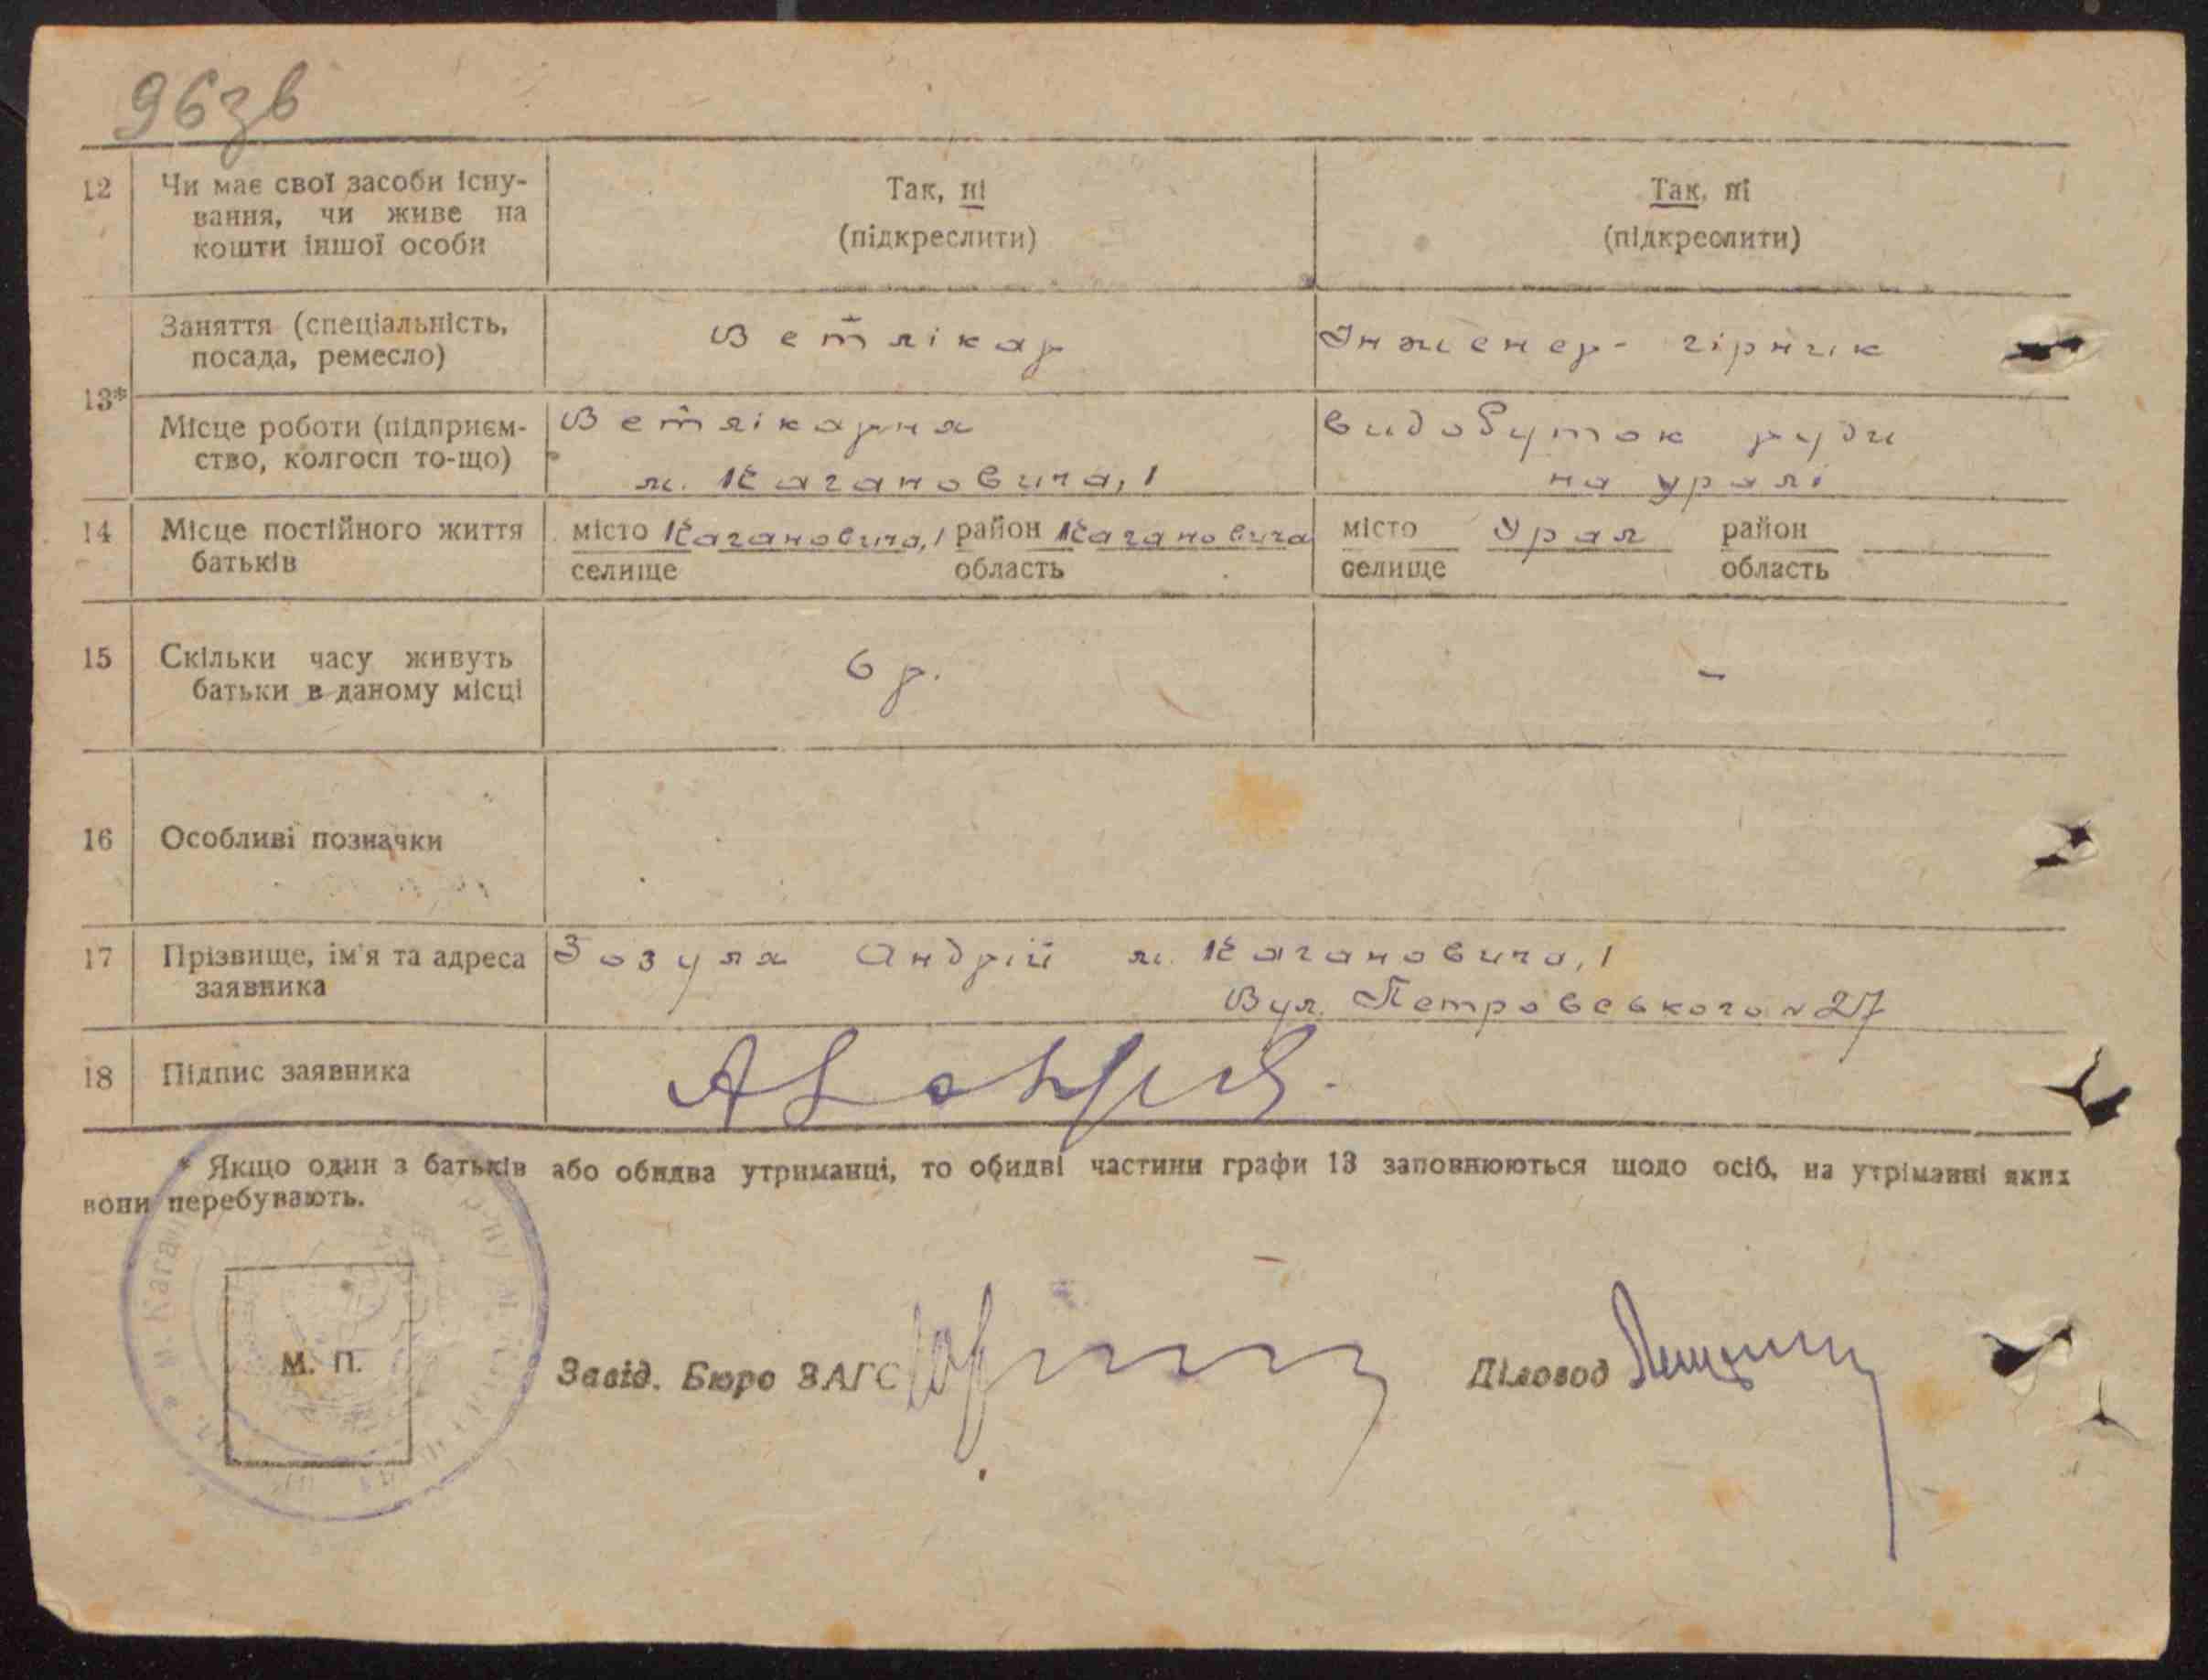 96зв
12 Чи має свої засоби існу- Так, ні Так, ні
вання, чи живе на (підкреслити) (підкреслити)
кошти іншої особи
13* Заняття (спеціальність, Ветлікар Інженер-гірник
посада, ремесло)
Місце роботи (підприєм- Ветлікарня видобуток руди
ство, колгосп то-що) м. Кагановича, 1 на уралі
14 Місце постійного життя місто Кагановича, 1 район Кагановича місто Урал район
батьків селище область селище область
15 Скільки часу живуть 6 р. -
батьки в даному місці
16 Особливі позначки
17 Прізвище, ім'я та адреса Зозуля Андрій м. Кагановича, 1
заявника Вул. Петровського № 27
18 Підпис заявника
* Якщо один з батьків або обидва утриманці, то обидві частини графи 13 заповнюються щодо осіб, на утріманні яких
вони перебувають.
М. П.
Завід. Бюро ЗАГС Діловод